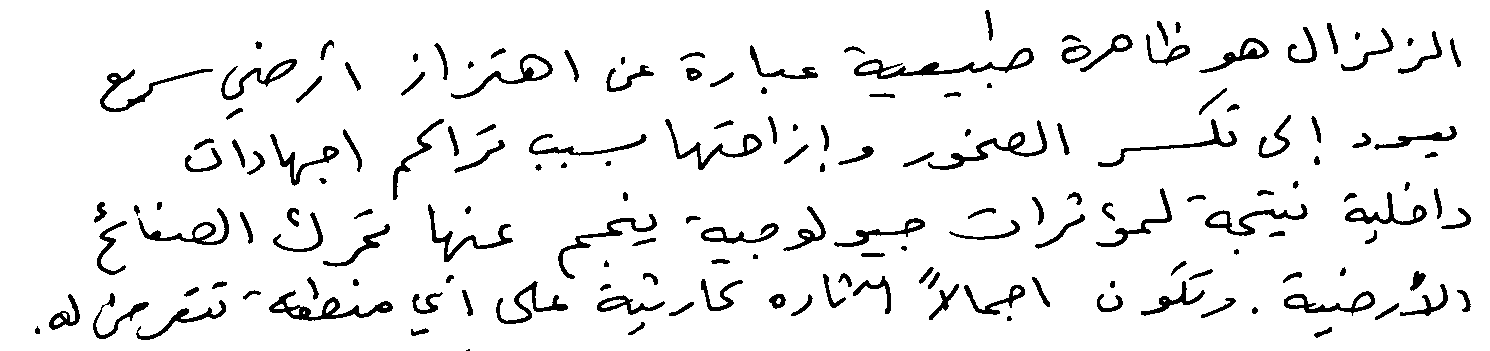 الزلزال هو ظاهرة طبيعية عبارة عن اهتزاز أرضي سريع
يعود إلى تكسر الصخور وإزاحتها بسبب تراكم اجهادات
داخلية نتيجة لمؤثرات جيولوجية ينجم عنها تحرك الصفائح
الأرضية. وتكون اجمالاً آثاره كارثية على أي منطقة تتعرض له.